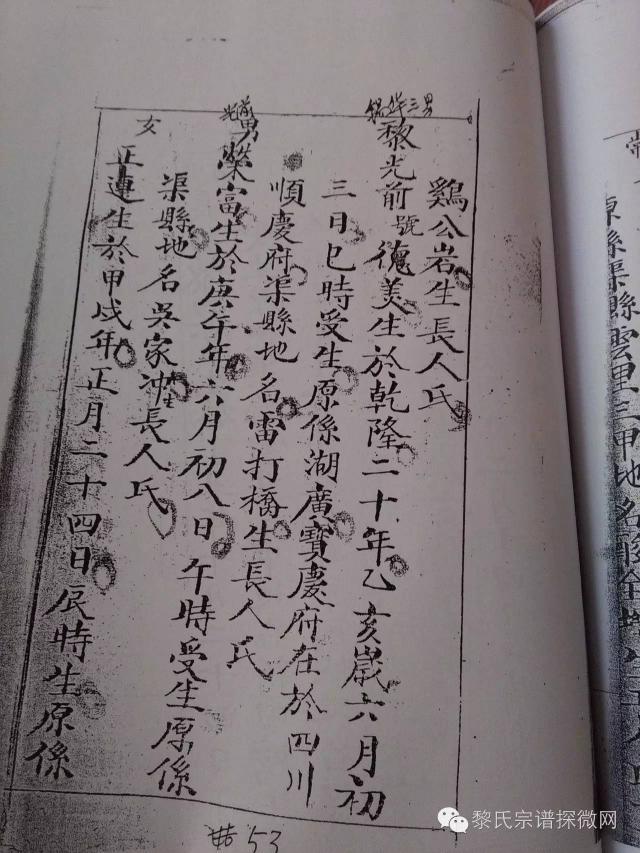 鷄公岩生長人氏
三男
黎光前號德美生於乾隆二十年乙亥歲六月初
三日巳時受生原係湖廣寶慶府在於四川
順慶府渠縣地名雷打橋生長人氏
男榮富生於庚午年六月初八日午時受生原係
渠縣地名吳家冲生長人氏
女
正蓮生於甲戌年正月二十四日辰時生原係
53
渠縣雲里三甲地名
黎氏宗谱探微网